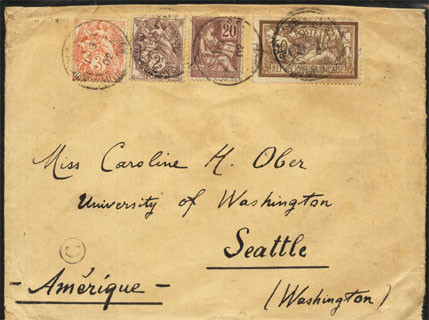 3
2
20
50
POSTES
Miss Caroline H. Ober
University of Washington
Seattle
- Amérique -
(Washington)